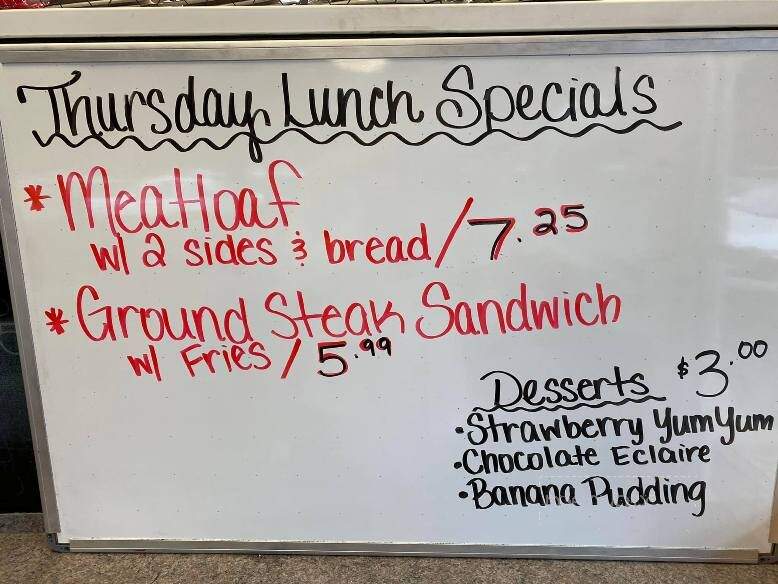 Thursday Lunch Specials
* Meatloaf
w/ 2 sides & bread / 7.25
* Ground Steak Sandwich
w/ Fries / 5.99
Desserts $3.00
• Strawberry YumYum
• Chocolate Eclaire
• Banana Pudding